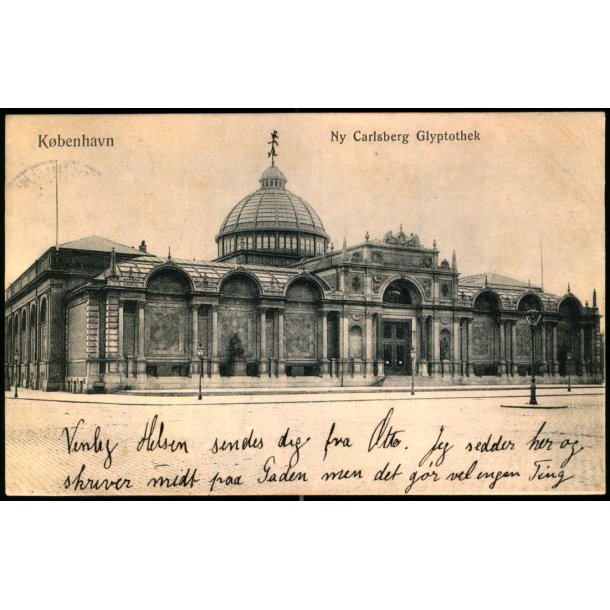 København
Ny Carlsberg Glyptothek
Venlig Helsen sendes dig fra Otto. Jeg sedder her og
skriver midt paa Gaden men det gør vel engen Ting